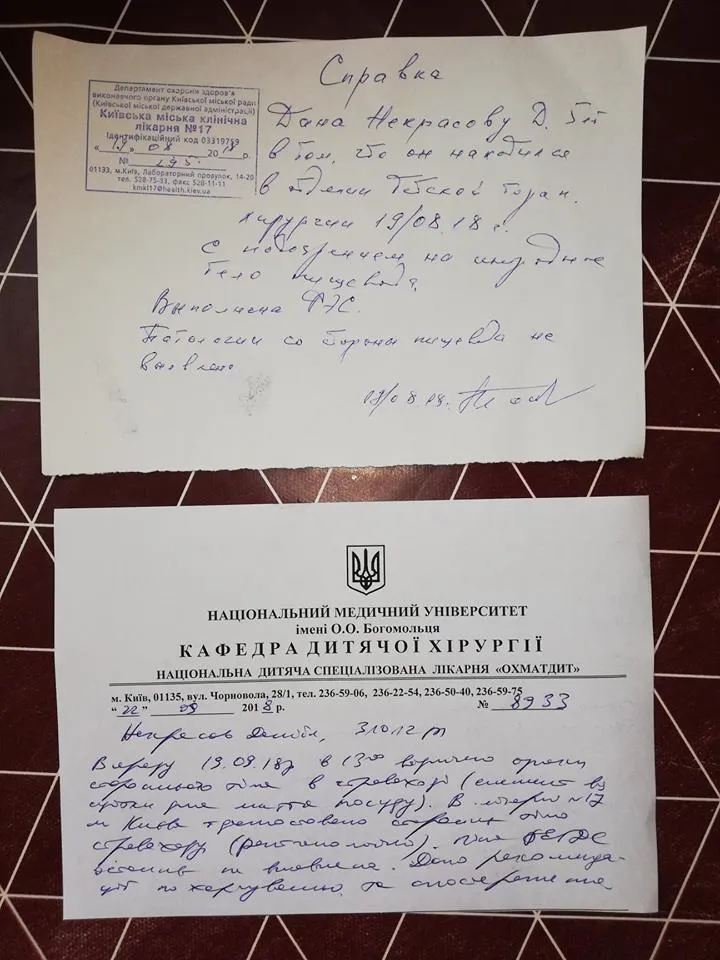 Справка
Департамент охорони здоров'я
виконавчого органу Київської міської ради
(Київської міської державної адміністрації)
Київська міська клінічна
лікарня №17
Ідентифікаційний код 03319759
«19» 08 2018р.
№ 295
01133, м.Київ, Лабораторний провулок, 14-20
тел. 528-75-33, факс 528-11-11
kmkl17@health.kiev.ua
Дана Некрасову Д.
в том, что он находился
в Детской
хирургии 19/08.18 г.
с подозрением на инородное
тело пищевода.
Выполнена ФЭС.
Патологии со стороны пищевода не
выявлено
НАЦІОНАЛЬНИЙ МЕДИЧНИЙ УНІВЕРСИТЕТ
імені О.О. Богомольця
КАФЕДРА ДИТЯЧОЇ ХІРУРГІЇ
НАЦІОНАЛЬНА ДИТЯЧА СПЕЦІАЛІЗОВАНА ЛІКАРНЯ «ОХМАТДИТ»
м. Київ, 01135, вул. Чорновола, 28/1, тел. 236-59-06, 236-22-54, 236-50-40, 236-59-75
"22" 09 2018 р. № 8933
Некрасов
19.09.18р в 13⁰⁰
тіло в стравоході (елемент від
для миття посуду). В лікарні №17
м Києва
стравоходу (рентгенологічно). ФЕГДС
не виявлена. Дано рекоменда-
ції по харчуванню та спостереження